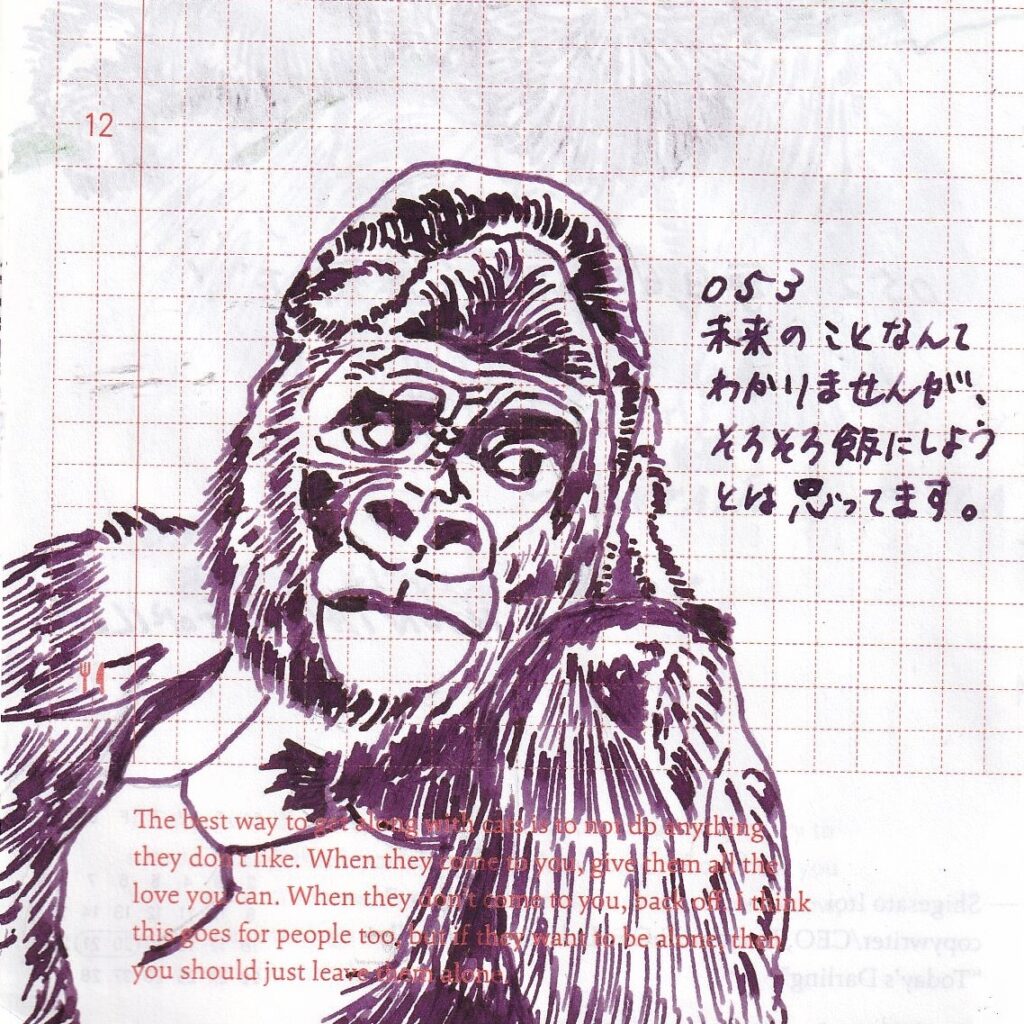 12
053
未来のことなんて
わかりませんが、
そろそろ飯にしよう
とは思ってます。
The best way to get along with cats is to not do anything
they don't like. When they come to you, give them all the
love you can. When they don't come to you, back off. I think
this goes for people too, but if they want to be alone, then
you should just leave them alone.